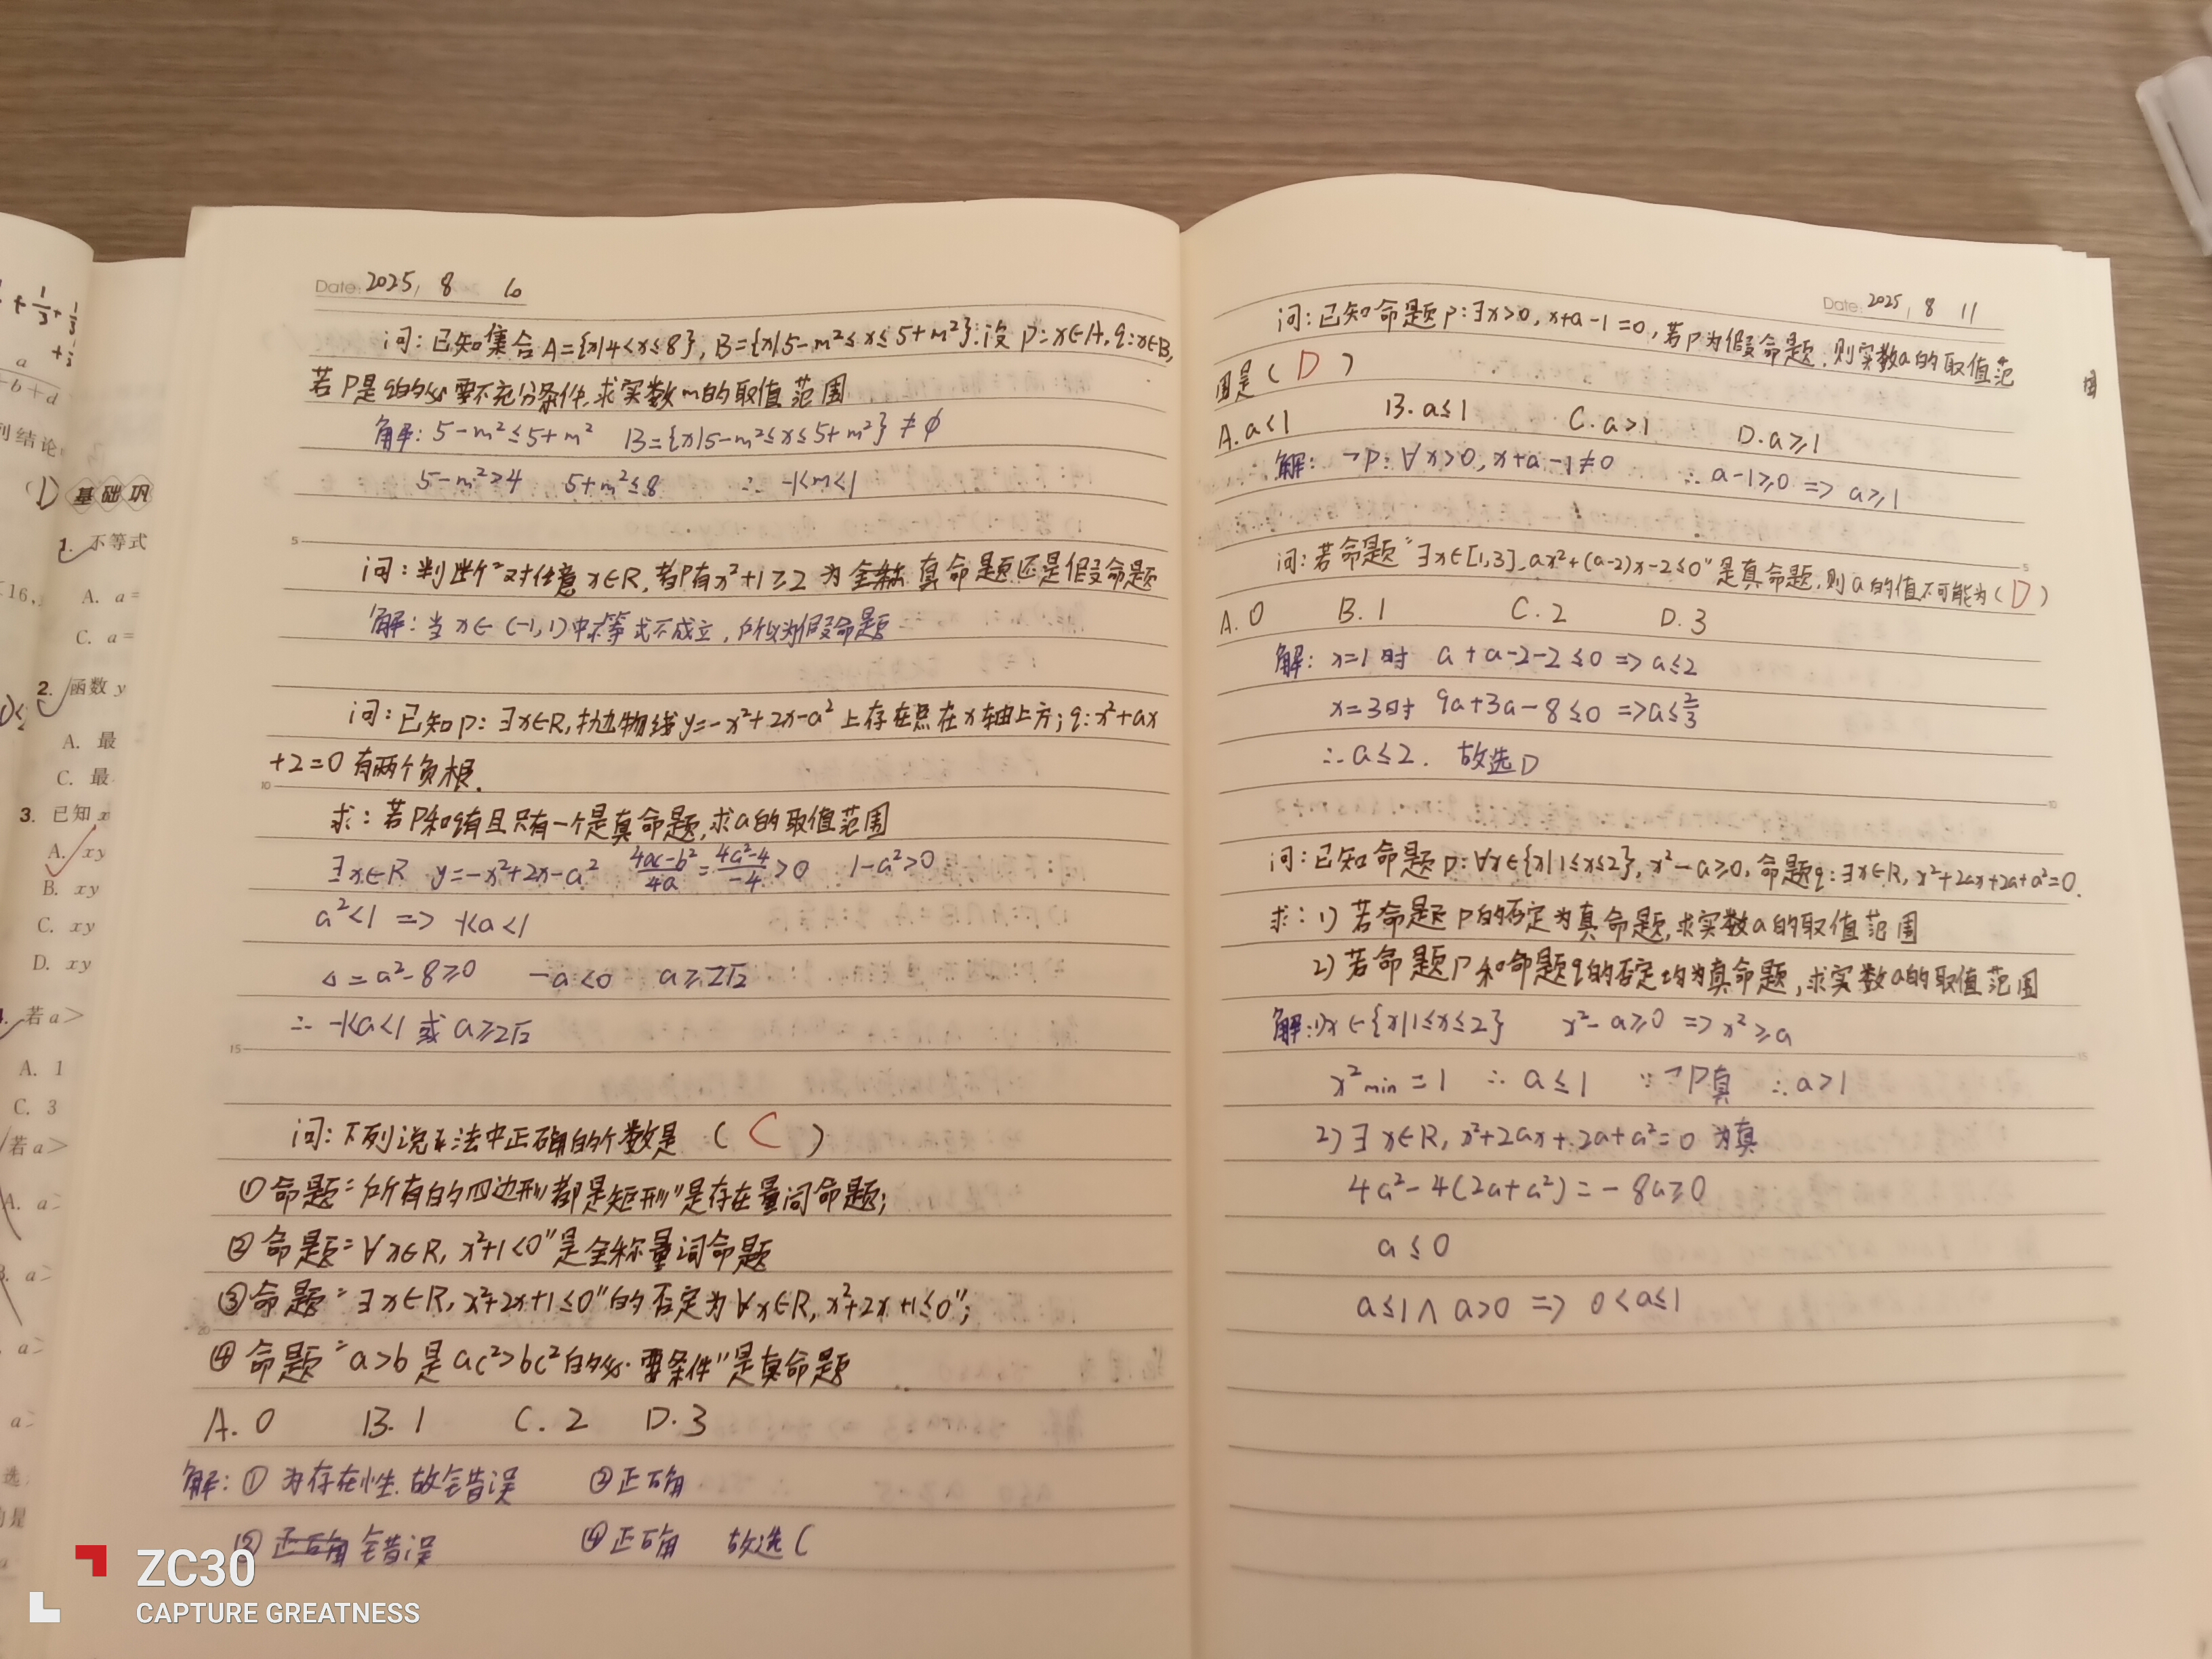 Date: 2025, 8 10
问：已知集合A={x|4<x≤8}, B={x|5-m²≤x≤5+m²}.设 p:x∈A, q:x∈B,
若P是q的必要不充分条件,求实数m的取值范围
解: 5-m²≤5+m² B={x|5-m²≤x≤5+m²}≠∅
5-m²>4 5+m²≤8 ∴ -1<m<1
5
问：判断"对任意x∈R,都有x²+1≥2 为 真命题还是假命题
解：当x∈(-1,1)中等式不成立,所以为假命题
问：已知p:∃x∈R,抛物线y=-x²+2x-a²上存在点在x轴上方;q:x²+ax
+2=0有两个负根.
10
求：若P和q有且只有一个是真命题,求a的取值范围
∃x∈R y=-x²+2x-a² 4ac-b²/4a=4a²-4/-4>0 1-a²>0
a²<1 => -1<a<1
△=a²-8≥0 -a<0 a≥2√2
∴ -1<a<1 或 a≥2√2
15
问：下列说法中正确的个数是 ( C )
①命题"所有的四边形都是矩形"是存在量词命题;
②命题"∀x∈R, x²+1<0"是全称量词命题
③命题"∃x∈R, x²+2x+1≤0"的否定为∀x∈R, x²+2x+1≤0";
20
④命题"a>b是ac²>bc²的必要条件"是真命题
A. 0 B. 1 C. 2 D. 3
解：① 为存在性.故错误 ②正确
③ 正确 错误 ④正确 故选C
Date: 2025, 8 11
问：已知命题p:∃x>0, x+a-1=0,若P为假命题,则实数a的取值范
围
围是( D )
A. a<1 B. a≤1 C. a>1 D. a≥1
解：¬P:∀x>0, x+a-1≠0 ∴a-1≥0 => a≥1
5
问：若命题"∃x∈[1,3], ax²+(a-2)x-2≤0"是真命题,则a的值不可能为( D )
A. 0 B. 1 C. 2 D. 3
解：x=1时 a+a-2-2≤0 => a≤2
x=3时 9a+3a-8≤0 => a≤2/3
∴a≤2. 故选D
10
问：已知命题p:∀x∈{x|1≤x≤2}, x²-a≥0,命题q:∃x∈R, x²+2ax+2a+a²=0.
求：1) 若命题P的否定为真命题,求实数a的取值范围
2) 若命题P和命题q的否定均为真命题,求实数a的取值范围
解:1)x∈{x|1≤x≤2} x²-a≥0 => x²≥a
15
x²min=1 ∴a≤1 ∵¬P真 ∴a>1
2)∃x∈R, x²+2ax+2a+a²=0 为真
4a²-4(2a+a²)=-8a≥0
a≤0
a≤1∧a>0 => 0<a≤1
20
基础巩
1. 不等式
A. a=
C. a=
2. 函数 y
A. 最
C. 最
3. 已知 x
A. xy
B. xy
C. xy
D. xy
若 a>
A. 1
C. 3
若 a>
A. a>
B. a>
ZC30
CAPTURE GREATNESS